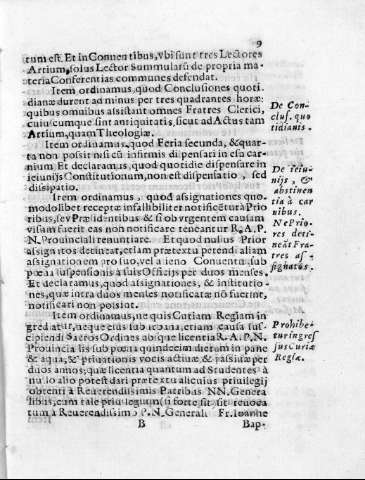 9
tum est. Et in Conuentibus, vbi sunt tres Lectores
Artium, solus Lector Summularū de propria ma-
teria Conferentias communes defendat.
Item ordinamus, quod Conclusiones quoti-
dianæ durent ad minus per tres quadrantes horæ:
quibus omnibus assistant omnes Fratres Clerici,
cuiuscumque sint antiquitatis, sicut ad Actus tam
Artium, quam Theologiæ.
De Con-
clus. quo
tidianis.
Item ordinamus, quod Feria secunda, & quar-
ta non possit nisi cū infirmis dispensari in esu car-
nium. Et declaramus, quod quotidie dispensare in
ieiunijs Constitutionum, non est dispensatio, sed
dissipatio.
De ieiu-
nijs, &
abstinen
tia à car
nibus.
Item ordinamus, quod assignationes quo-
modolibet receptæ infallibiliter notificētur à Prio
ribus, seu Præsidentibus & si ob vrgentem causam
visam fuerit eas non notificare teneantur R. A. P.
N. Prouinciali renuntiare. Et quod nullus Prior
assignatos detineat, etiam prætextu petendi aliam
assignationem pro suo, vel alieno Conuentu, sub
pœna suspensionis à suis Officijs per duos menses.
Et declaramus, quod assignationes, & institutio-
nes, quæ intra duos menses notificatæ nō fuerint,
notificari non possint.
Ne Prio-
res deti-
neāt Fra-
tres as-
signatos.
Item ordinamus, ne quis Curiam Regiam in
grediatur, neque eius sub vrbana, etiam causa sus-
cipiendi Sacros Ordines absque licentia R. A. P. N.
Prouincialis sub pœna quindecim dierum in pane
& aqua, & priuationis vocis actiuæ, & passiuæ per
duos annos; quæ licentia quantum ad Studentes à
nullo alio potest dari prætextu alicuius priuilegij
obtenti à Reuerendissimis Patribus NN. Genera
libus, cum tale priuilegium (si forte sit) sit reuoca
tum à Reuerendissimo P. N. Generali Fr. Ioanne
Prohibe-
tur ingres
sus Curiæ
Regiæ.
B
Bap-